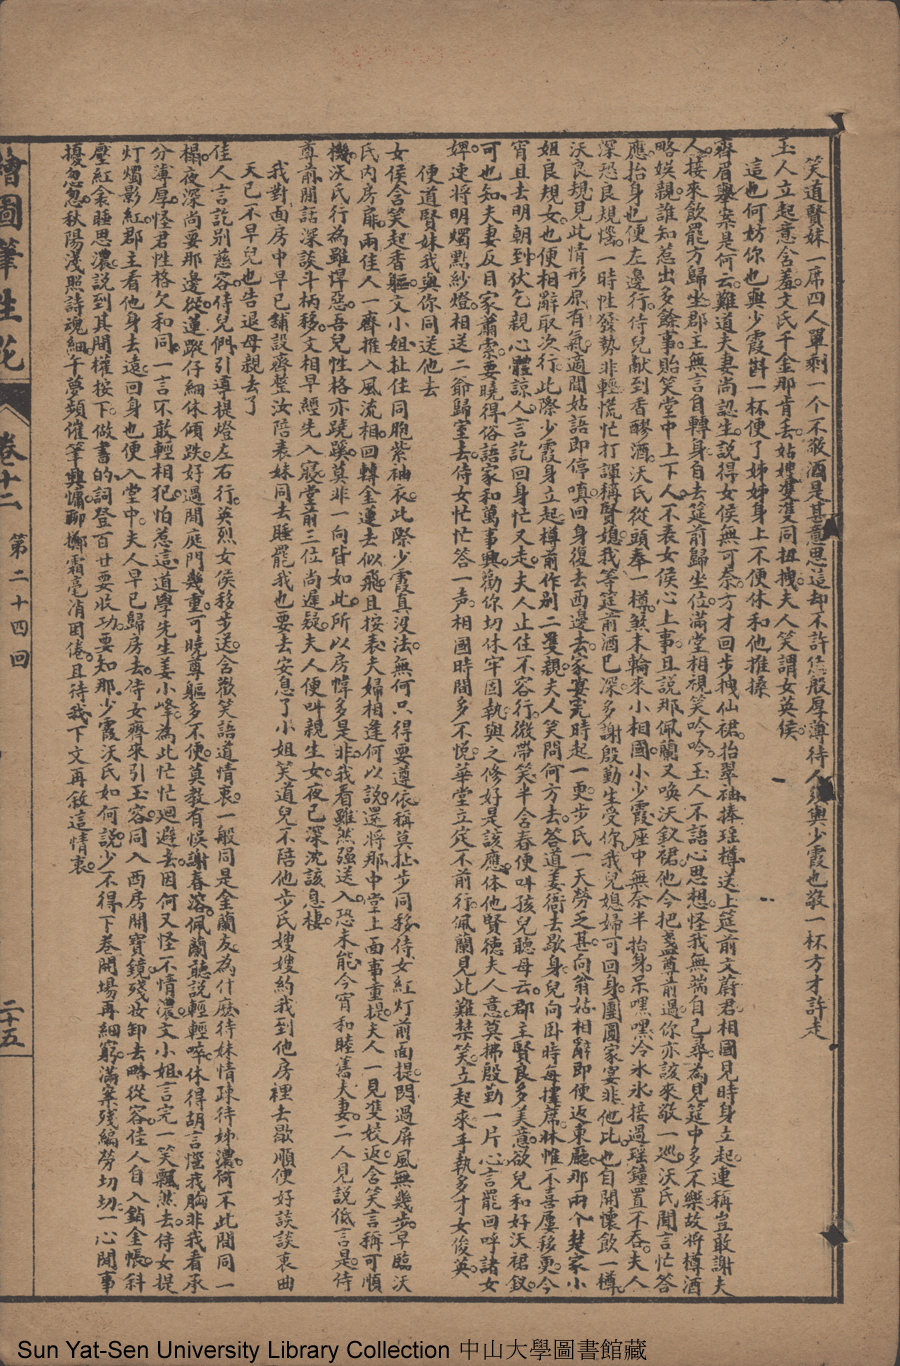 笑道賢妹一席四人單剩一个不敬酒是甚意思這却不許焦般厚薄待人須與少霞也敬一杯方才許走
玉人立起意含羞文氏千金那肯丢姑嫂雙雙同扭拽夫人笑謂女英侯
這也何妨你也與少霞斟一杯便了姊姊身上不便休和他推搡
齊眉舉案是何云難道夫妻尚認生說得女侯無可奈方才回步拽仙裙抬翠袖捧瑤樽送上筵前文蔚君相國見時身立起連稱豈敢謝夫
人接來飲罷方歸坐郡王無言自轉身自去筵前歸坐位滿堂相視笑吟吟玉人不語心思想怪我無端自己尋為見筵中多不樂故將樽酒
略娛親誰知惹出多餘事貽笑堂中上下人不表女侯心上事且說那佩蘭又喚沃釵裙他今把盞尊前過你亦該來敬一巡沃氏聞言忙答
應抬身也便左邊行侍兒献到香醪酒沃氏從頭奉一樽煞末輪來小相國小少霞座中無奈半抬身呆嘿嘿冷冰冰接過瑤鐘置不吞夫人
深恐良規惱一時性發勢非輕慌忙打諢稱賢媳我等筵前酒已深多謝殷勤生受你我兒媳婦可回身團圓家宴非他比也自開懷飲一樽
沃良規見此情形原有氣適聞姑語即停嗔回身復去西邊去家宴完時起一更步氏一天勞乏甚向翁姑相辭即便返東廳那兩个楚家小
姐良規女也便相辭取次行此際少霞身立起樽前作别二雙親夫人笑問何方去答道姜衙去歇身兒向卧時每擇席牀惟不喜屢移更今
宵且去明朝到伏乞親心體諒人言訖回身忙又走夫人止住不容行微帶笑半含春便叫孩兒聽母云郡主賢良多美意欲兒和好沃裙釵
可也知夫妻反目家蕭索要曉得俗語家和萬事興勸你切休牢固執與之修好是該應体他賢德夫人意莫拂殷勤一片心言罷回呼諸女
婢速將明燭點紗燈相送二爺歸室去侍女忙忙答一声相國時間多不悅華堂立定不前行佩蘭見此難禁笑立起來手執多才女俊英
便道賢妹我與你同送他去
女侯含笑起香軀文小姐扯住同胞紫袖衣此際少霞真没法無何只得要遵依稱莫扯步同移侍女紅灯前面提閃過屏風無幾步早臨沃
氏内房扉兩佳人一齊推入風流相回轉金蓮去似飛且按表夫婦相逢何以說還將那中堂上面事重提夫人一見雙姣返含笑言稱可順
機沃氏行為雖悍惡吾兒性格亦蹺蹊莫非一向皆如此所以房幃多是非我看雖然强送入恐未能今宵和睦舊夫妻二人見説低言是侍
尊前閒話深談斗柄移文相早經先入寢堂前三位尚遲疑夫人便叫親生女夜已深沈該息棲
我對面房中早已舖設齊整汝陪表妹同去睡罷我也要去安息了小姐笑道兒不陪他步氏嫂嫂約我到他房裡去歇順便好談談衷曲
天已不早兒也告退母親去了
佳人言訖别慈容侍兒們引導提燈左右行英烈女侯移步送含歡笑語道情衷一般同是金蘭友為什麽待妹情疎待姊濃何不此間同一
榻夜深尚要那邊從蓮蹤仔細休傾跌好過閒庭門幾重可曉尊軀多不便莫教有悞謝春溶佩蘭聽説輕輕啐休得胡言惱我胸非我看承
分薄厚怪君性格欠和同一言不敢輕相犯怕惹這道學先生姜小峰為此忙忙廻避去因何又怪不情濃文小姐言完一笑飄然去侍女提
灯燭影紅郡主看他身去遠回身也便入堂中夫人早已歸房去侍女齊來引玉容同入西房開寶鏡殘妆卸去略從容佳人自入銷金帳斜
壓紅衾睡思濃說到其間權按下做書的詞登百廿要收功要知那少霞沃氏如何說少不得下卷開場再細窮滿案殘編勞切切一心閒事
擾匆匆秋陽淺照詩魂細午夢頻催筆興慵聊擲霜亳消困倦且待我下文再敘這情衷
繪圖筆生花 卷十二 第二十四回 二十五
Sun Yat-Sen University Library Collection 中山大學圖書館藏